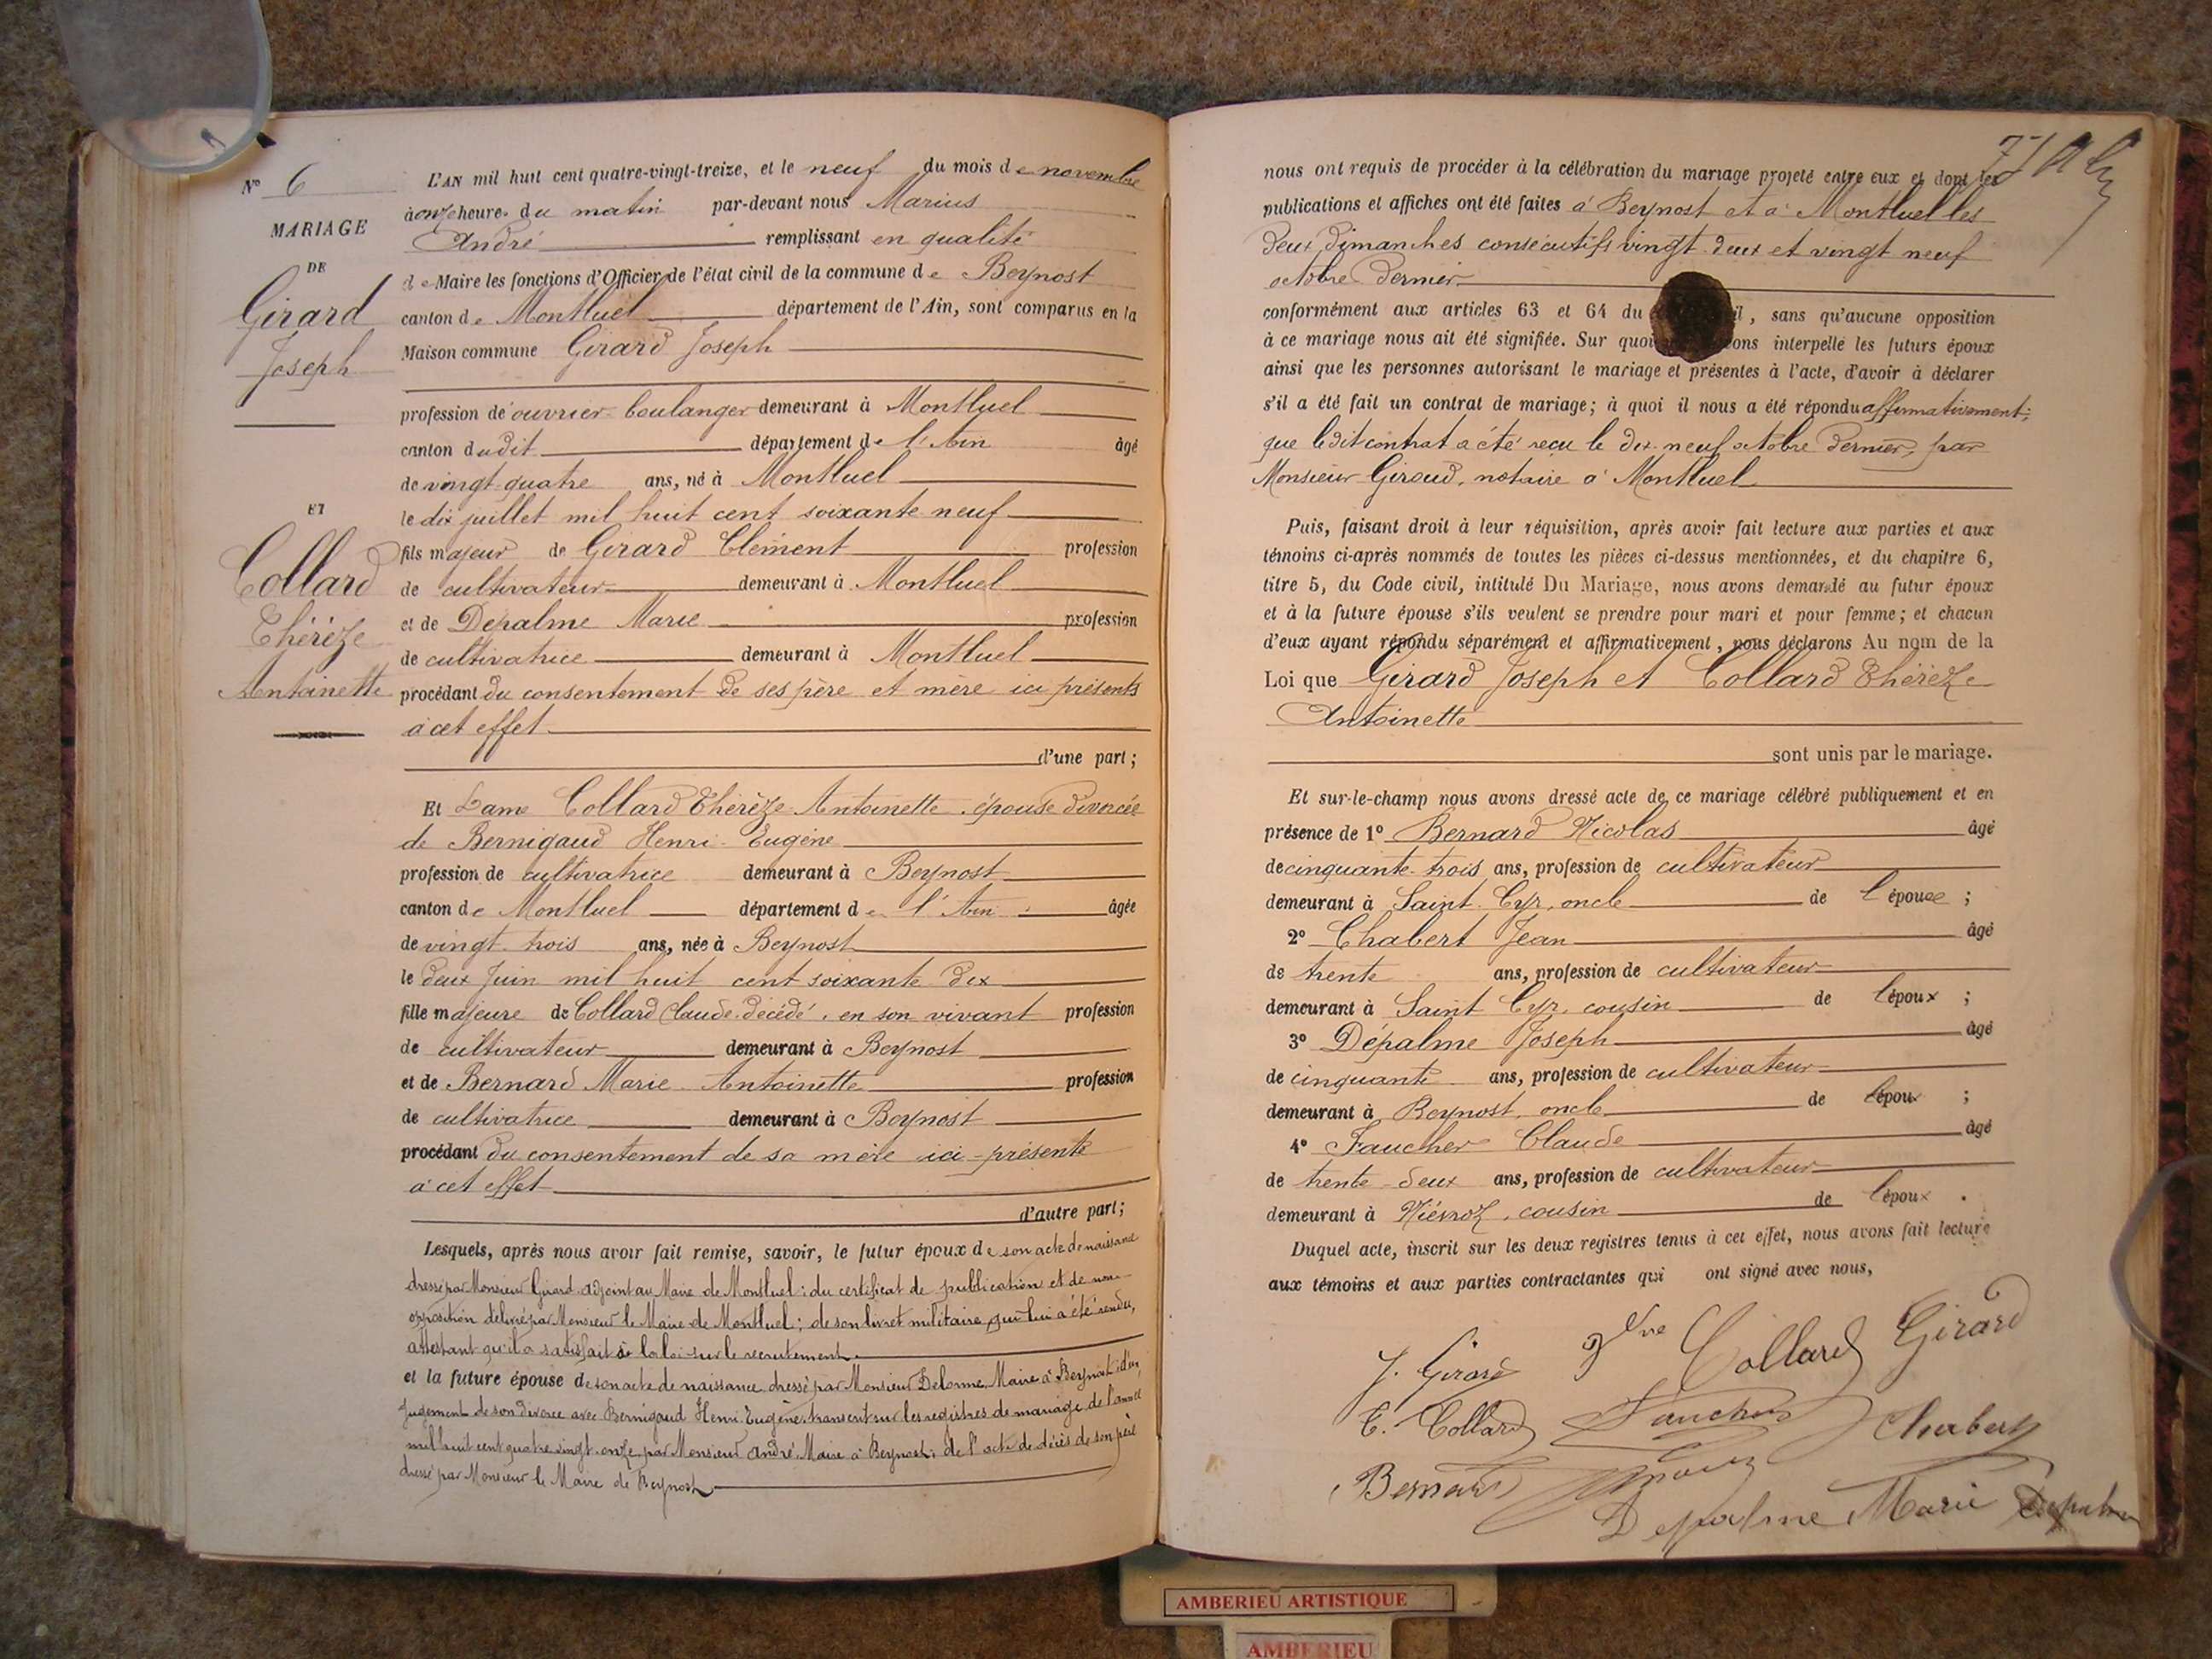 N° 6
MARIAGE
DE
Girard
Joseph
ET
Collard
Thérèze
Antoinette
L'AN mil huit cent quatre-vingt-treize, et le neuf du mois de novembre
à onze heures du matin par-devant nous Marius
André remplissant en qualité
de Maire les fonctions d'Officier de l'état civil de la commune de Beynost
canton de Montluel département de l'Ain, sont comparus en la
Maison commune Girard Joseph
profession de ouvrier boulanger demeurant à Montluel
canton dudit département de l'Ain âgé
de vingt quatre ans, né à Montluel
le dix juillet mil huit cent soixante neuf
fils majeur de Girard Clément profession
de cultivateur demeurant à Montluel
et de Depalme Marie profession
de cultivatrice demeurant à Montluel
procédant du consentement de ses père et mère ici présents
à cet effet
d'une part;
Et Dame Collard Thérèze Antoinette, épouse divorcée
de Bernigaud Henri Eugène
profession de cultivatrice demeurant à Beynost
canton de Montluel département de l'Ain âgée
de vingt trois ans, née à Beynost
le deux Juin mil huit cent soixante dix
fille majeure de Collard Claude décédé, en son vivant profession
de cultivateur demeurant à Beynost
et de Bernard Marie Antoinette profession
de cultivatrice demeurant à Beynost
procédant du consentement de sa mère ici-présente
à cet effet
d'autre part;
Lesquels, après nous avoir fait remise, savoir, le futur époux de son acte de naissance
dressé par Monsieur Girard adjoint au Maire de Montluel; du certificat de publication et de non
opposition délivré par Monsieur le Maire de Montluel; de son livret militaire qui lui a été rendu,
attestant qu'il a satisfait à la loi sur le recrutement.
et la future épouse de son acte de naissance dressé par Monsieur Delorme, Maire à Beynost; d'un
Jugement de son divorce avec Bernigaud Henri Eugène, transcrit sur les registres de mariage de l'année
mil huit cent quatre vingt onze par Monsieur André Maire à Beynost; de l'acte de décès de son père
dressé par Monsieur le Maire de Beynost
nous ont requis de procéder à la célébration du mariage projeté entre eux et dont les
publications et affiches ont été faites à Beynost et à Montluel les
deux dimanches consécutifs vingt-deux et vingt neuf
octobre dernier
conformément aux articles 63 et 64 du il, sans qu'aucune opposition
à ce mariage nous ait été signifiée. Sur quoi ons interpelle les futurs époux
ainsi que les personnes autorisant le mariage et présentes à l'acte, d'avoir à déclarer
s'il a été fait un contrat de mariage; à quoi il nous a été répondu affirmativement;
que ledit contrat a été reçu le dix-neuf octobre dernier, par
Monsieur Giroud, notaire à Montluel
Puis, faisant droit à leur réquisition, après avoir fait lecture aux parties et aux
témoins ci-après nommés de toutes les pièces ci-dessus mentionnées, et du chapitre 6,
titre 5, du Code civil, intitulé Du Mariage, nous avons demandé au futur époux
et à la future épouse s'ils veulent se prendre pour mari et pour femme; et chacun
d'eux ayant répondu séparément et affirmativement, nous déclarons Au nom de la
Loi que Girard Joseph et Collard Thérèze
Antoinette
sont unis par le mariage.
Et sur-le-champ nous avons dressé acte de ce mariage célébré publiquement et en
présence de 1° Bernard Nicolas âgé
de cinquante-trois ans, profession de cultivateur
demeurant à Saint Cyr, oncle de l'épouse;
2° Chabert Jean âgé
de trente ans, profession de cultivateur
demeurant à Saint Cyr, cousin de l'époux;
3° Dépalme Joseph âgé
de cinquante ans, profession de cultivateur
demeurant à Beynost, oncle de l'époux;
4° Faucher Claude âgé
de trente-deux ans, profession de cultivateur
demeurant à Niévroz, cousin de l'époux.
Duquel acte, inscrit sur les deux registres tenus à cet effet, nous avons fait lecture
aux témoins et aux parties contractantes qui ont signé avec nous,
J. Girard Vve Collard Girard
C. Collard Faucher Chabert
Bernard
Depalme Marie
AMBERIEU ARTISTIQUE
AMBERIEU